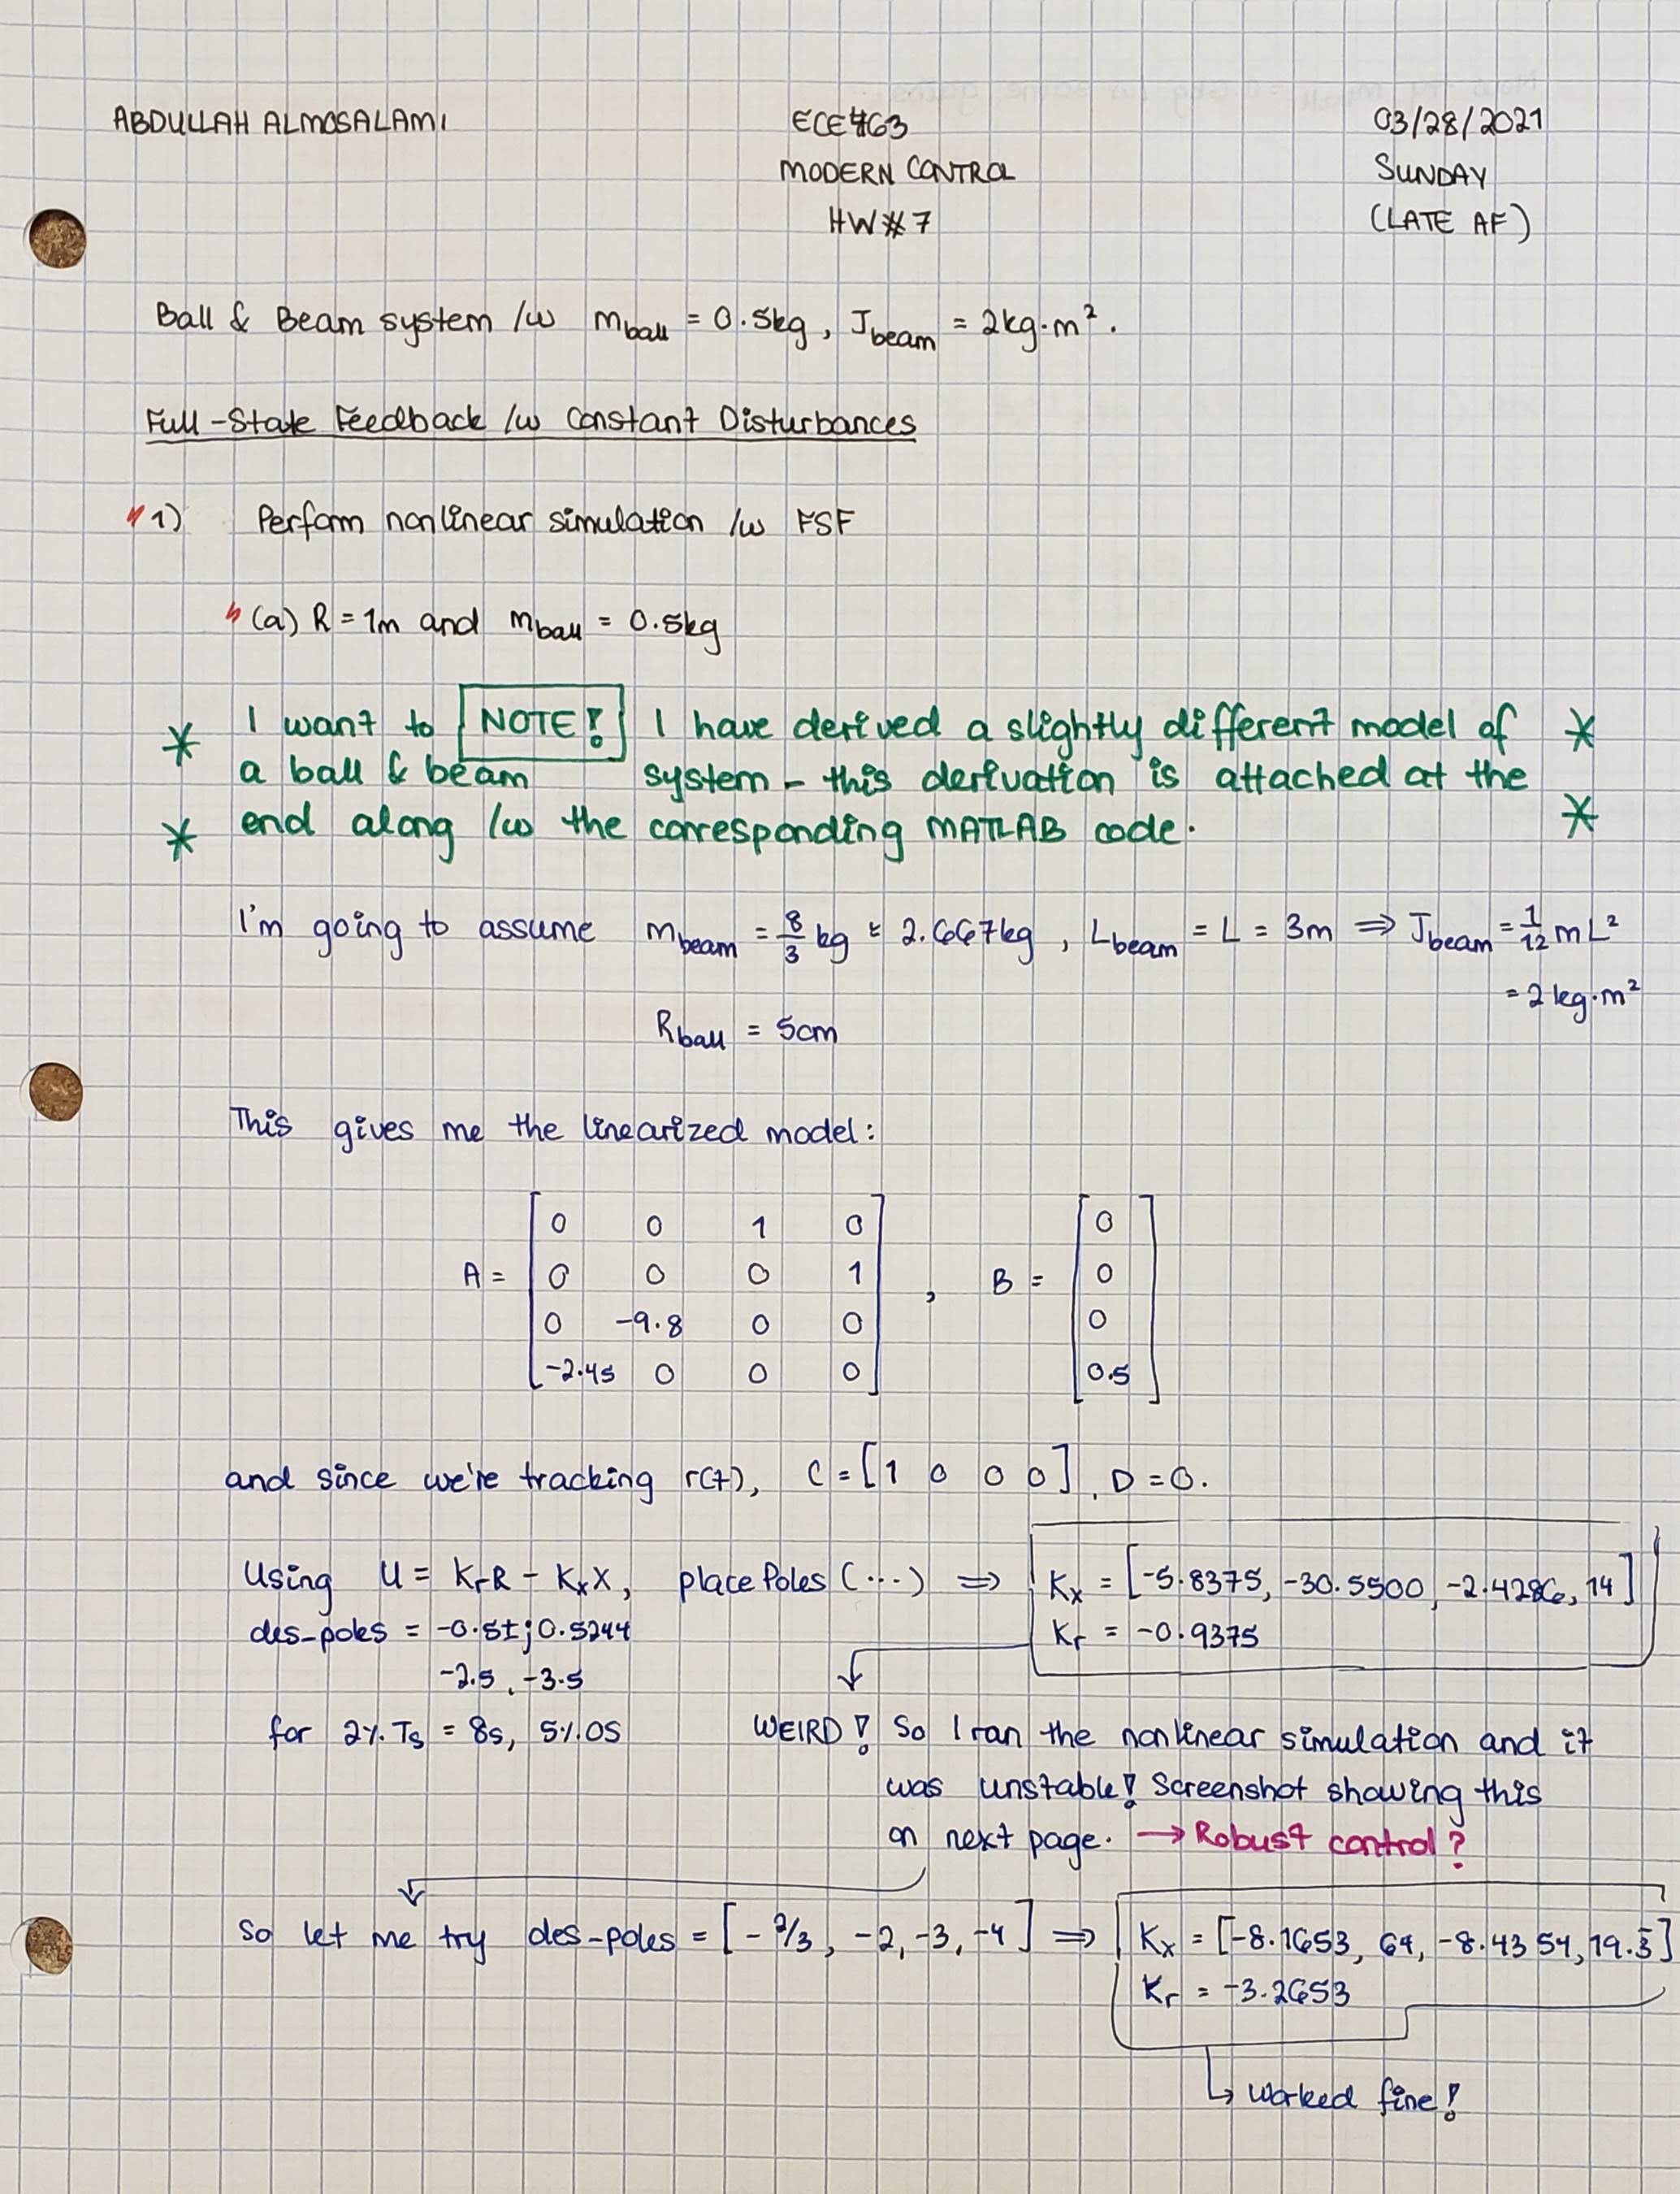 ABDULLAH ALMOSALAMI
ECE463
MODERN CONTROL
HW#7
03/28/2021
SUNDAY
(LATE AF)
Ball & Beam system /w m_ball = 0.5kg, J_beam = 2kg·m².
Full-State Feedback /w Constant Disturbances
1) Perform nonlinear simulation /w FSF
(a) R = 1m and m_ball = 0.5kg
* I want to NOTE! I have derived a slightly different model of *
a ball & beam system - this derivation is attached at the
* end along /w the corresponding MATLAB code. *
I'm going to assume m_beam = 8/3 kg ≈ 2.667kg, L_beam = L = 3m ⇒ J_beam = 1/12 mL²
= 2kg·m²
R_ball = 5cm
This gives me the linearized model:
A = [0 0 1 0; 0 0 0 1; 0 -9.8 0 0; -2.45 0 0 0], B = [0; 0; 0; 0.5]
and since we're tracking r(t), C = [1 0 0 0], D = 0.
Using U = KrR - KxX, placePoles(...) ⇒ Kx = [-5.8375, -30.5500, -2.4286, 14]
Kr = -0.9375
des-poles = -0.5±j0.5244
-2.5, -3.5
for 2% Ts = 8s, 5% OS
WEIRD! So I ran the nonlinear simulation and it
was unstable! Screenshot showing this
on next page. → Robust control?
So let me try des-poles = [-2/3, -2, -3, -4] ⇒ Kx = [-8.1653, 64, -8.4354, 19.3̄]
Kr = -3.2653
↳ worked fine!